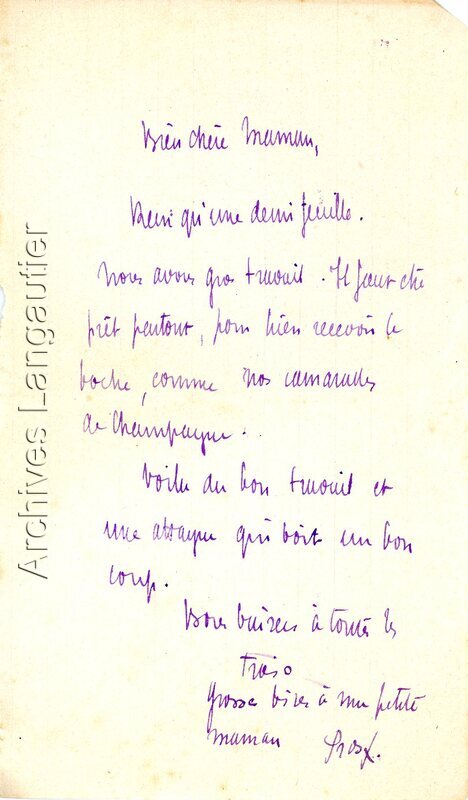 Bien chère Maman,
Rien qu'une demi feuille.
Nous avons gros travail. Il faut être
prêt partout, pour bien recevoir le
boche, comme nos camarades
de Champagne.
Voilà du bon travail et
une attaque qui boit un bon
coup.
Bons baisers à toutes les
trois
Grosses bises à ma petite
maman
Archives Langautier